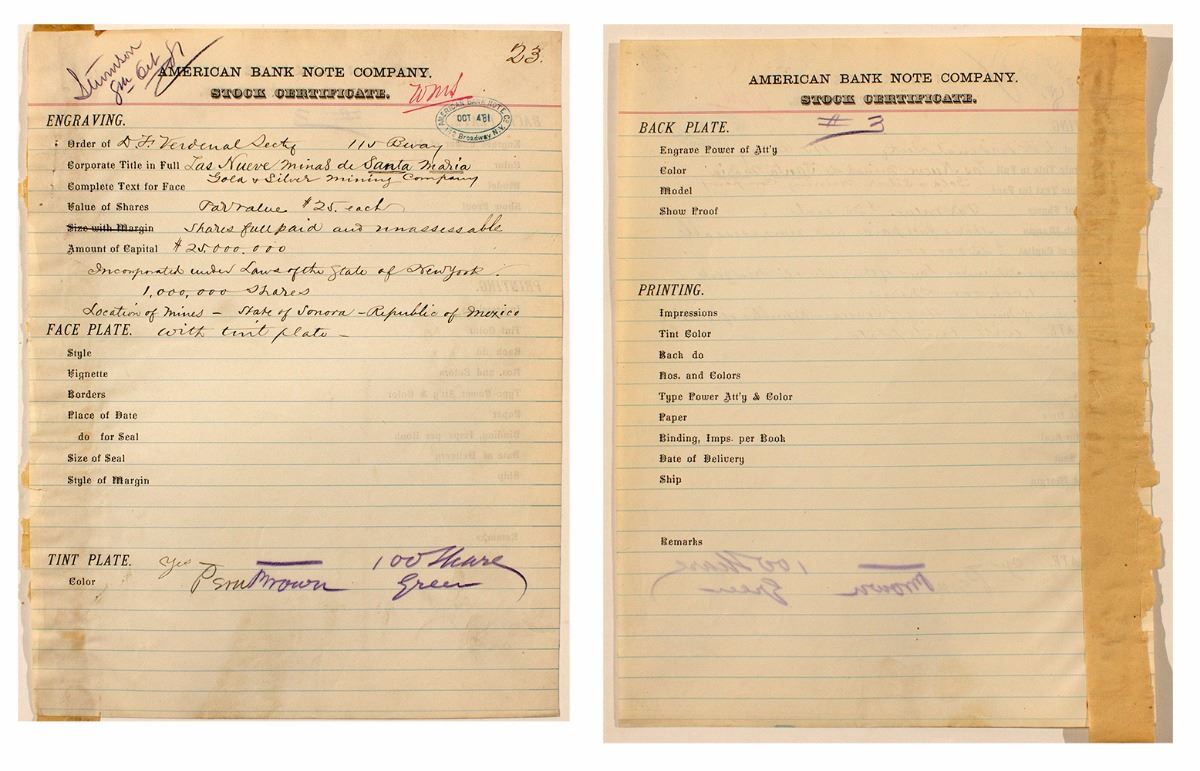 Stimson
23.
AMERICAN BANK NOTE COMPANY.
STOCK CERTIFICATE.
AMERICAN BANK NOTE CO.
OCT 4 81
Broadway, N.Y.
ENGRAVING.
Order of D. F. Verdenal Secty 115 Bway
Corporate Title in Full Las Nueve Minas de Santa Maria
Gold & Silver Mining Company
Complete Text for Face
Value of Shares Par value $25. each
Size with Margin Shares full paid and unassessable
Amount of Capital $25.000.000
Incorporated under Laws of the State of New York.
1,000,000 Shares
Location of Mines – State of Sonora – Republic of Mexico
FACE PLATE. with tint plate –
Style
Vignette
Borders
Place of Date
do for Seal
Size of Seal
Style of Margin
TINT PLATE. Yes 100 Share
Color Brown Green
AMERICAN BANK NOTE COMPANY.
STOCK CERTIFICATE.
BACK PLATE. # 3
Engrave Power of Att'y
Color
Model
Show Proof
PRINTING.
Impressions
Tint Color
Back do
Nos. and Colors
Type Power Att'y & Color
Paper
Binding, Imps. per Book
Date of Delivery
Ship
Remarks